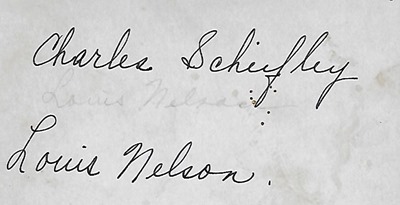 Charles Scheifley
Louis Nelson
Louis Nelson.